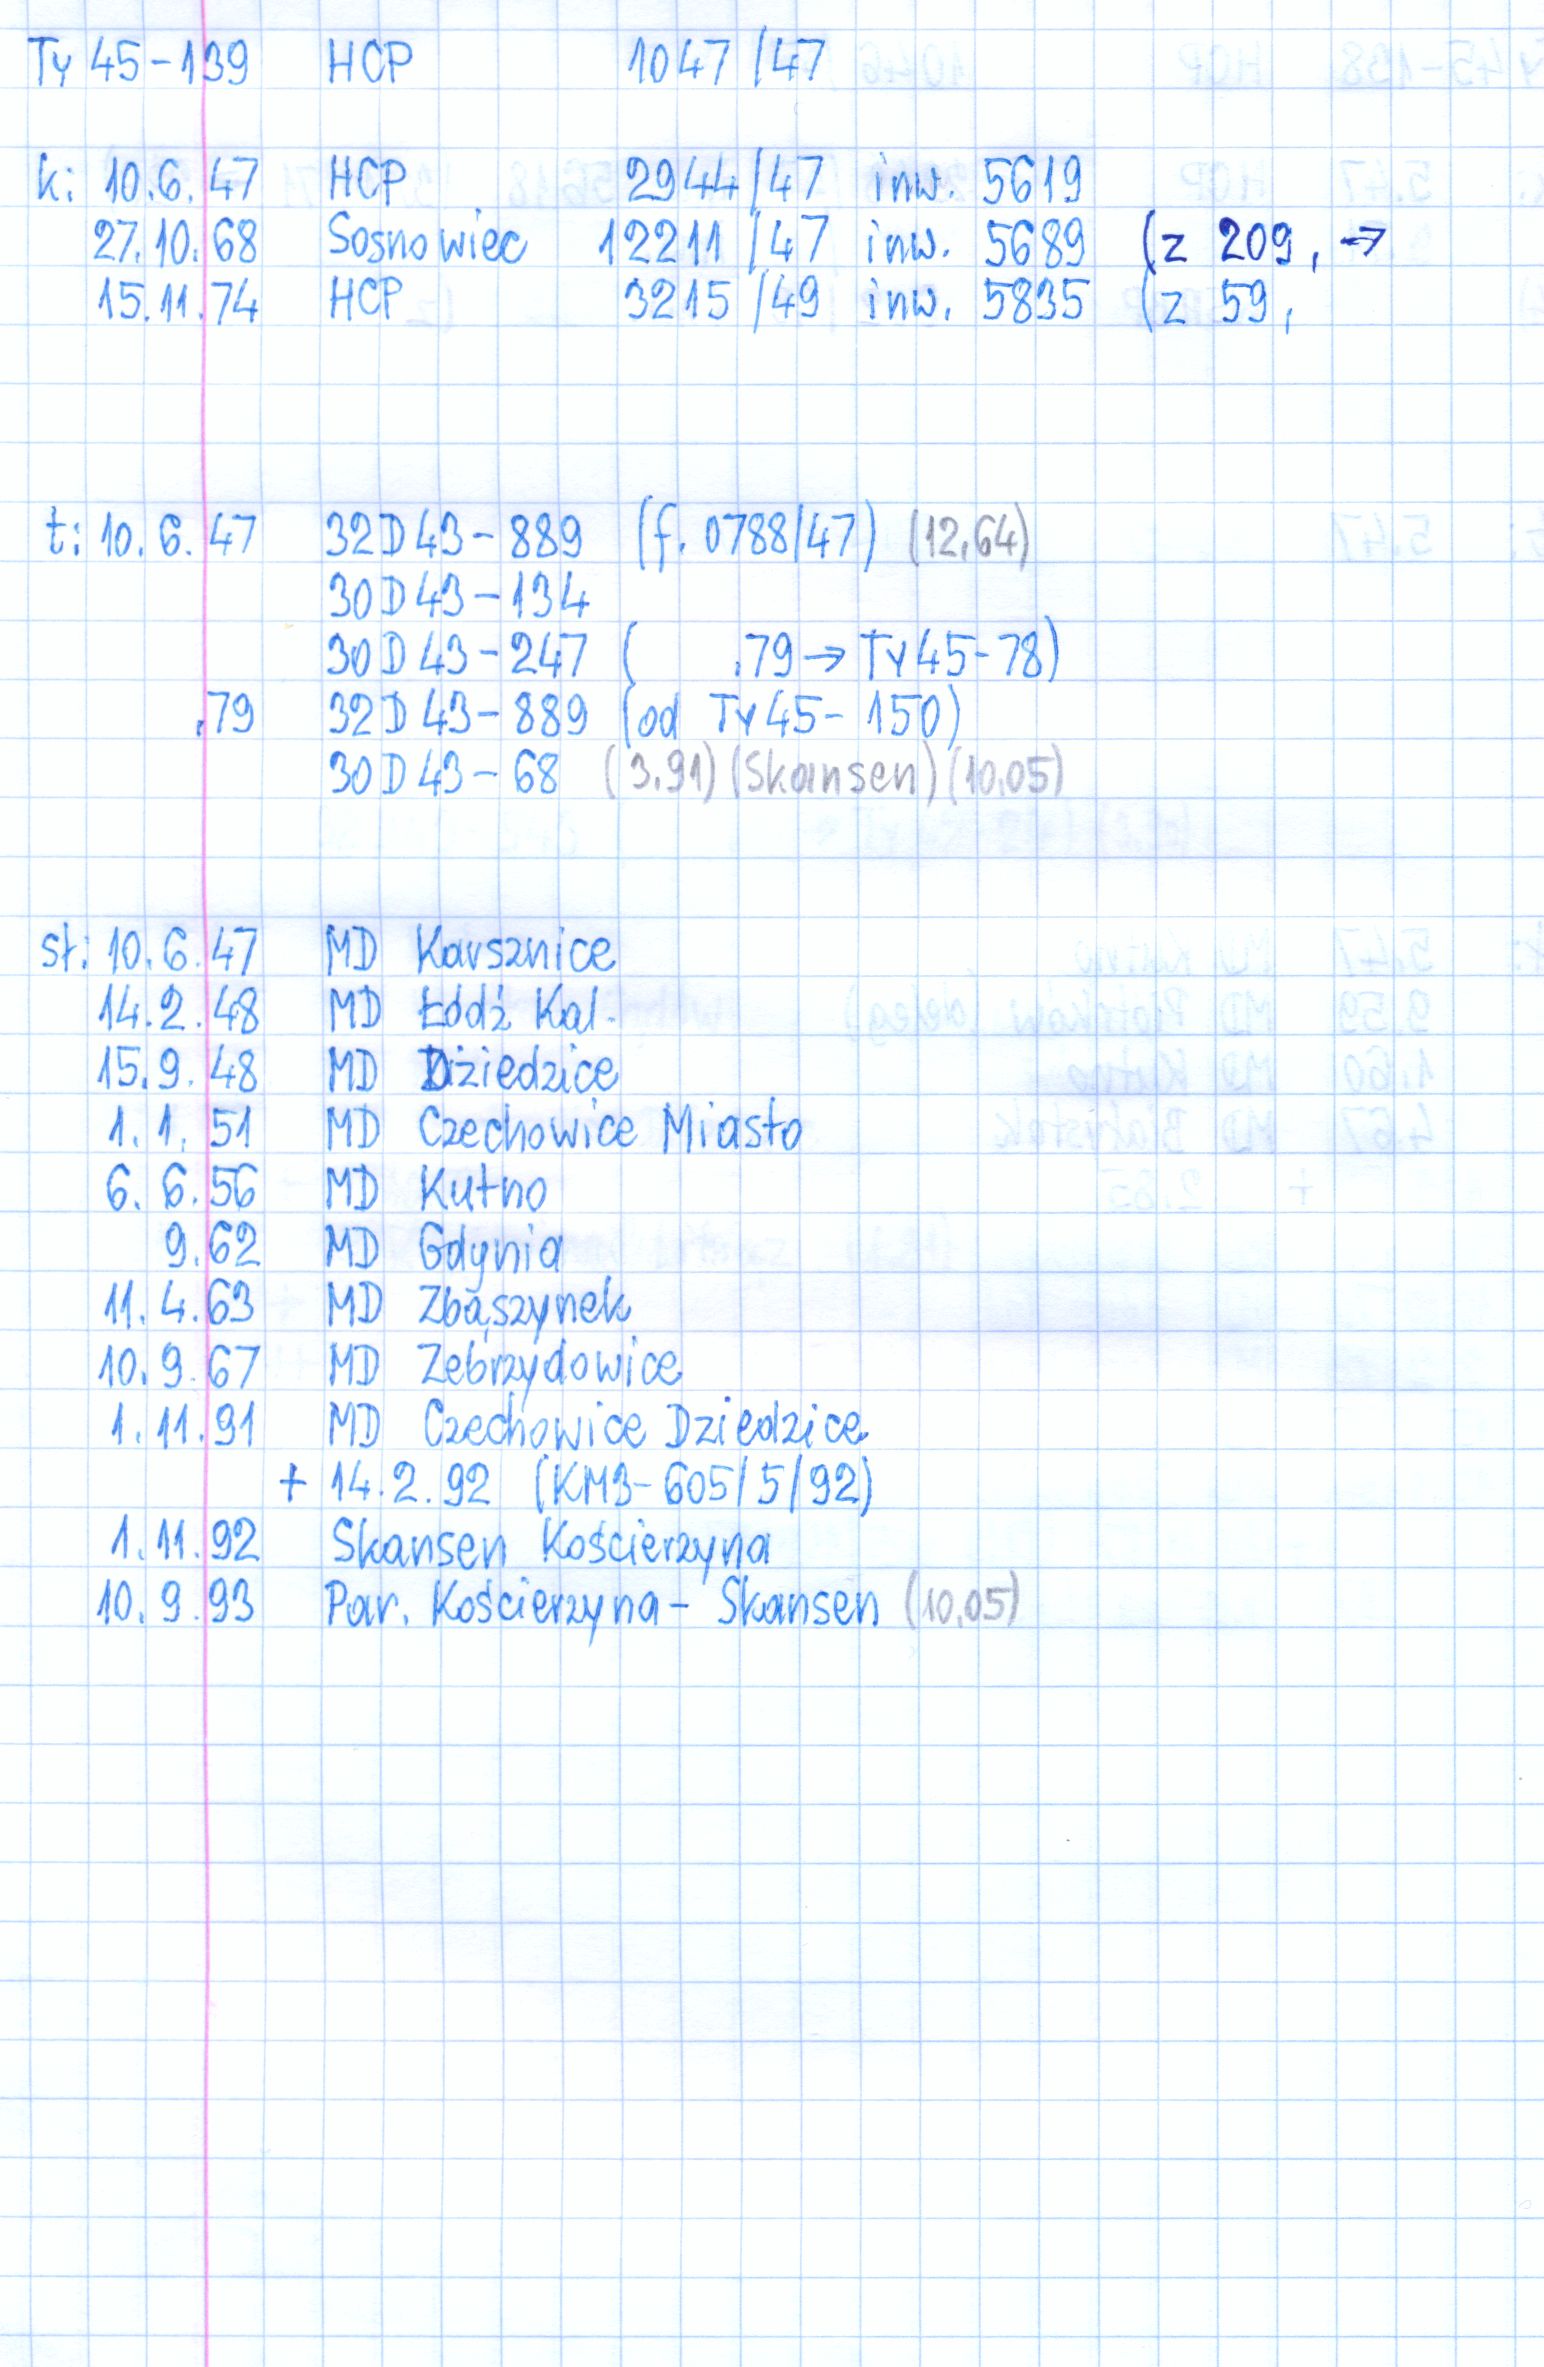 Ty 45-139 HCP 1047/47
k: 10.6.47 HCP 2944/47 inw. 5619
27.10.68 Sosnowiec 12211/47 inw. 5689 (z 209, →
15.11.74 HCP 3215/49 inw. 5835 (z 59,
t: 10.6.47 32D43-889 (f. 0788/47) (12.64)
30D43-134
30D43-247 ( .79→Ty45-78)
.79 32D43-889 (od Ty45-150)
30D43-68 (3.91) (Skansen) (10.05)
st: 10.6.47 MD Karsznice
14.2.48 MD Łódź Kal.
15.9.48 MD Dziedzice
1.1.51 MD Czechowice Miasto
6.6.56 MD Kutno
9.62 MD Gdynia
11.4.63 MD Zbąszynek
10.9.67 MD Zebrzydowice
1.11.91 MD Czechowice Dziedzice
+ 14.2.92 (KM3-605/5/92)
1.11.92 Skansen Kościerzyna
10.9.93 Par. Kościerzyna - Skansen (10.05)